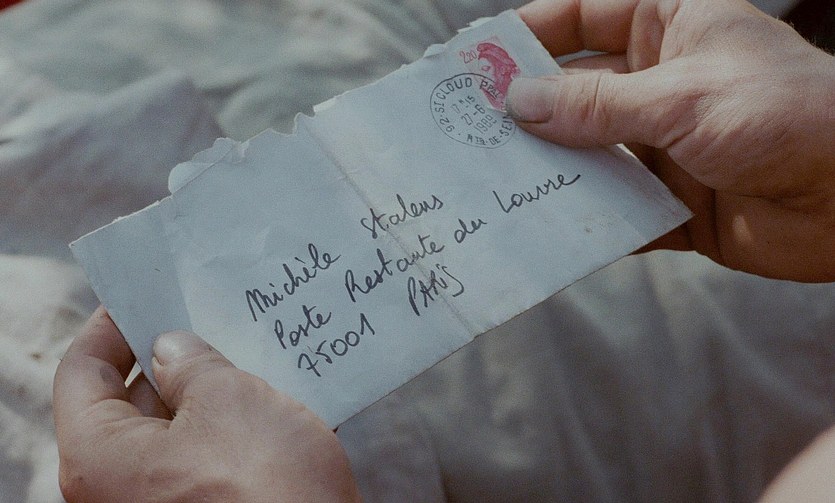 2,20
92 ST CLOUD PPAL
27-6
1989
HTS-DE-SEINE
Michèle Stalens
Poste Restante du Louvre
75001 PARIS